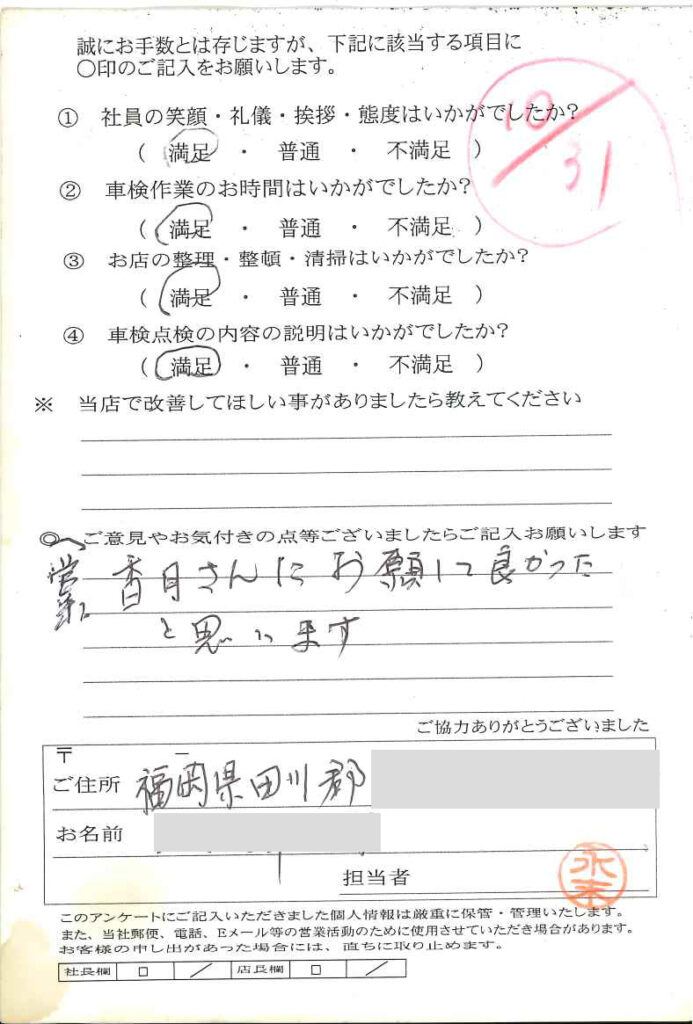 誠にお手数とは存じますが、下記に該当する項目に
〇印のご記入をお願いします。
10/31
① 社員の笑顔・礼儀・挨拶・態度はいかがでしたか？
( 満足 ・ 普通 ・ 不満足 )
② 車検作業のお時間はいかがでしたか？
( 満足 ・ 普通 ・ 不満足 )
③ お店の整理・整頓・清掃はいかがでしたか？
( 満足 ・ 普通 ・ 不満足 )
④ 車検点検の内容の説明はいかがでしたか？
( 満足 ・ 普通 ・ 不満足 )
※ 当店で改善してほしい事がありましたら教えてください
◎ ご意見やお気付きの点等ございましたらご記入お願いします
営業 香月さんにお願して良かった
と思います
ご協力ありがとうございました
〒
ご住所 福岡県田川郡
お名前
担当者 永末
このアンケートにご記入いただきました個人情報は厳重に保管・管理いたします。
また、当社郵便、電話、Eメール等の営業活動のために使用させていただき場合があります。
お客様の申し出があった場合には、直ちに取り止めます。
社長欄 □ ／ 店長欄 □ ／